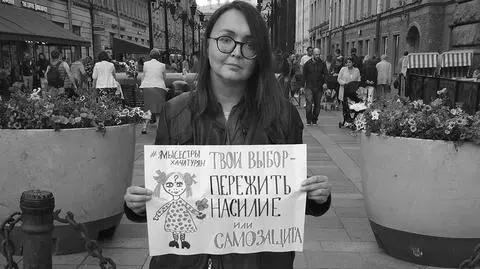 #ЯМЫСЕСТРЫ
ХАЧАТУРЯН
ТВОЙ ВЫБОР-
ПЕРЕЖИТЬ
НАСИЛИЕ
ИЛИ
САМОЗАЩИТА